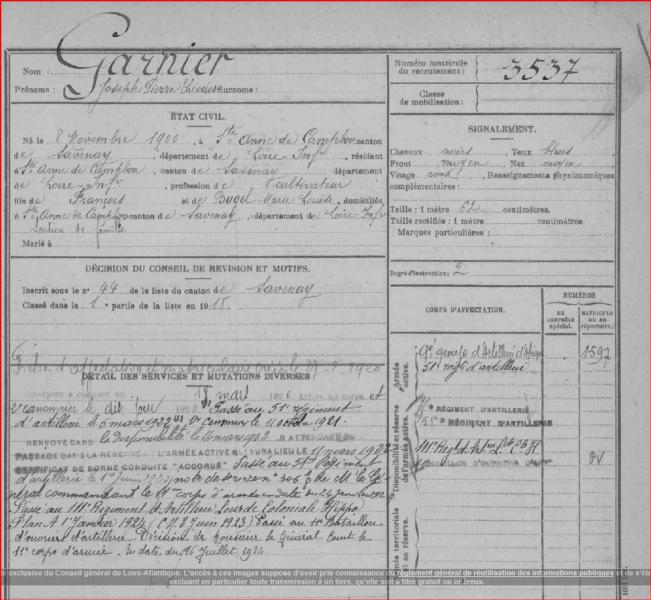 Nom : Garnier
Numéro matricule du recrutement : 3537
Prénoms : Joseph Pierre Surnoms :
Classe de mobilisation :
ÉTAT CIVIL.
Né le 8 Novembre 1900, à Ste Anne de Campbon canton
de Savenay, département de Loire-Infre, résident
à Ste Anne de Campbon, canton de Savenay département
de Loire-Infre, profession de cultivateur
fils de François et de Marie Louise, domiciliés
à Ste Anne de Campbon canton de Savenay, département de Loire-Infre
Soutien de famille
Marié à
SIGNALEMENT.
Cheveux noirs Yeux bleus
Front moyen Nez moyen
Visage rond Renseignements physionomiques
complémentaires :
Taille : 1 mètre 62 centimètres.
Taille rectifiée : 1 mètre centimètres.
Marques particulières :
Degré d'instruction : 2
DÉCISION DU CONSEIL DE REVISION ET MOTIFS.
Inscrit sous le no 44 de la liste du canton de Savenay
Classé dans la 1e partie de la liste en 1918
CORPS D'AFFECTATION.
NUMÉROS
AU CONTRÔLE spécial.
MATRICULE OU AU répertoire.
Armée active.
groupe d'Artillerie d'Afrique 1597
51e régt d'artillerie
Disponibilité et réserve de l'armée active.
RÉGIMENT D'ARTILLERIE
51e RÉGIMENT D'ARTILLERIE
BATAILLON D'OUVRIERS D'ART
Armée territoriale et sa réserve.
DÉTAIL DES SERVICES ET MUTATIONS DIVERSES
18 mars 1920 et
2e canonnier le dit jour Passé au 51e régiment
d'artillerie le 6 mars 1922 1er canonnier le 11 octobre 1921.
RENVOYÉ DANS la disponibilité le EN ATTENDANT SON
PASSAGE DANS LA RÉSERVE DE L'ARMÉE ACTIVE QUI AURA LIEU LE 11 mars 1922
CERTIFICAT DE BONNE CONDUITE "ACCORDÉ" Passé au 51e Régiment
d'artillerie le 1er Juin 1923 note de service de M. le Gé
néral commandant le 11e corps d'armée en date du 24 janvier
Passé au 111e Régiment d'Artillerie Lourde Coloniale Hippo
Plan A 1er Janvier 1924 (C.M. 8 Juin 1923) Passé au 11e Bataillon
d'ouvriers d'artillerie. Décision de Monsieur le Général Comt le
11e corps d'armée. En date du 16 Juillet 1924
exclusive du Conseil général de Loire-Atlantique. L'accès à ces images suppose d'avoir pris connaissance du règlement général de réutilisation des informations publiques et de s'ê
excluant en particulier toute transmission à un tiers, qu'elle soit à titre gratuit ou onéreux.